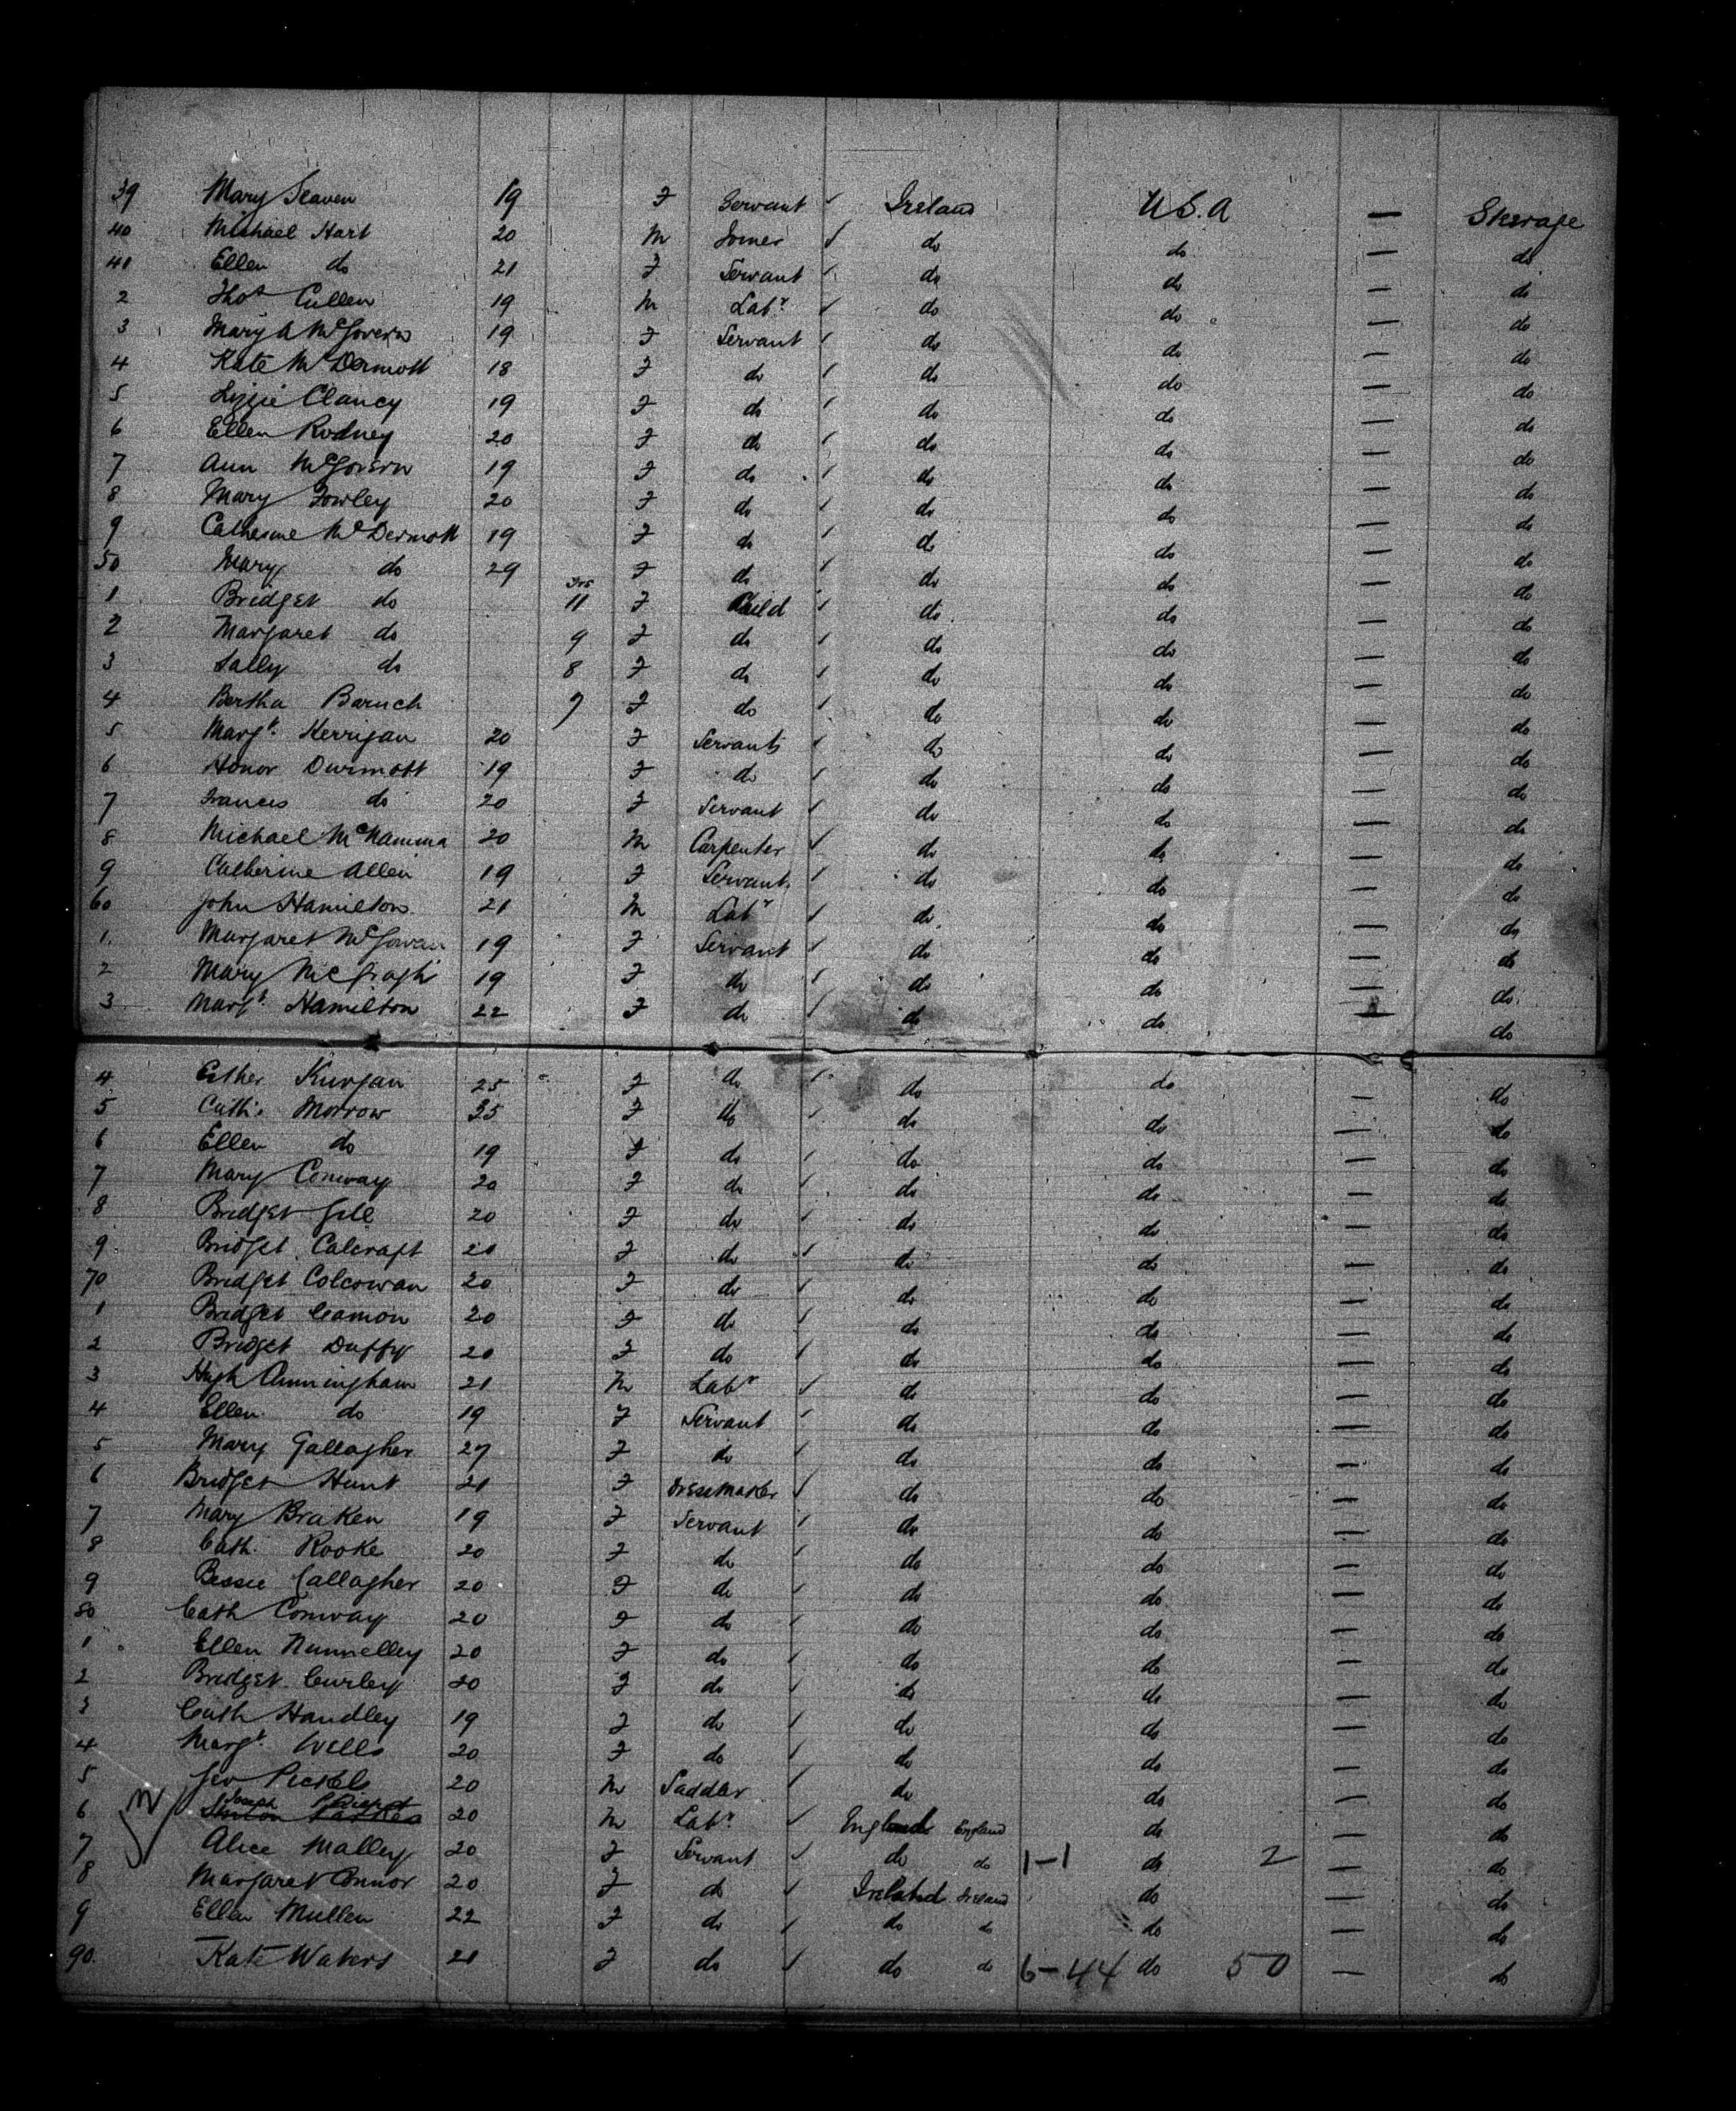 39 Mary Seaven 19 F Servant ✓ Ireland U.S.A — Steerage
40 Michael Hart 20 M Joiner ✓ do do — do
41 Ellen do 21 F Servant ✓ do do — do
2 Thos Cullen 19 M Labr ✓ do do — do
3 Mary A McGovern 19 F Servant ✓ do do — do
4 Kate McDermott 18 F do ✓ do do — do
5 Lizzie Clancy 19 F do ✓ do do — do
6 Ellen Rodney 20 F do ✓ do do — do
7 Ann McGovern 19 F do ✓ do do — do
8 Mary Fowley 20 F do ✓ do do — do
9 Catherine McDermott 19 F do ✓ do do — do
50 Mary do 29 F do ✓ do do — do
1 Bridget do yrs 11 F Child ✓ do do — do
2 Margaret do 9 F do ✓ do do — do
3 Sally do 8 F do ✓ do do — do
4 Bertha Baruch 7 F do ✓ do do — do
5 Margt. Kerrigan 20 F Servants ✓ do do — do
6 Honor Durmott 19 F do ✓ do do — do
7 Frances do 20 F Servant ✓ do do — do
8 Michael McNamma 20 M Carpenter ✓ do do — do
9 Catherine Allen 19 F Servant ✓ do do — do
60 John Hamilton 21 M Labr ✓ do do — do
1 Margaret McGowan 19 F Servant ✓ do do — do
2 Mary McGragh 19 F do ✓ do do — do
3 Margt. Hamilton 22 F do ✓ do do — do
4 Esther 25 F do ✓ do do — do
5 Cath. Morrow 35 F do ✓ do do — do
6 Ellen do 19 F do ✓ do do — do
7 Mary Conway 20 F do ✓ do do — do
8 Bridget Gill 20 F do ✓ do do — do
9 Bridget Calcraft 21 F do ✓ do do — do
70 Bridget Colcowan 20 F do ✓ do do — do
1 Bridget Camon 20 F do ✓ do do — do
2 Bridget Duffy 20 F do ✓ do do — do
3 Hugh Cunningham 21 M Labr ✓ do do — do
4 Ellen do 19 F Servant ✓ do do — do
5 Mary Gallagher 27 F do ✓ do do — do
6 Bridget Hunt 21 F Dressmaker ✓ do do — do
7 Mary Braken 19 F Servant ✓ do do — do
8 Cath. Rooke 20 F do ✓ do do — do
9 Bessie Gallagher 20 F do ✓ do do — do
80 Cath Conway 20 F do ✓ do do — do
1 Ellen Nunnelley 20 F do ✓ do do — do
2 Bridget Curley 20 F do ✓ do do — do
3 Cath Handley 19 F do ✓ do do — do
4 Margt. Wells 20 F do ✓ do do — do
5 Geo Pickels 20 M Saddler ✓ do do — do
6 Joseph 20 M Labr ✓ England England do — do
7 Alice Malley 20 F Servant ✓ do do 1-1 do 2 — do
8 Margaret Connor 20 F do ✓ Ireland Ireland do — do
9 Ellen Mullen 22 F do ✓ do do do — do
90 Kate Waters 21 F do ✓ do do 6-44 do 50 — do